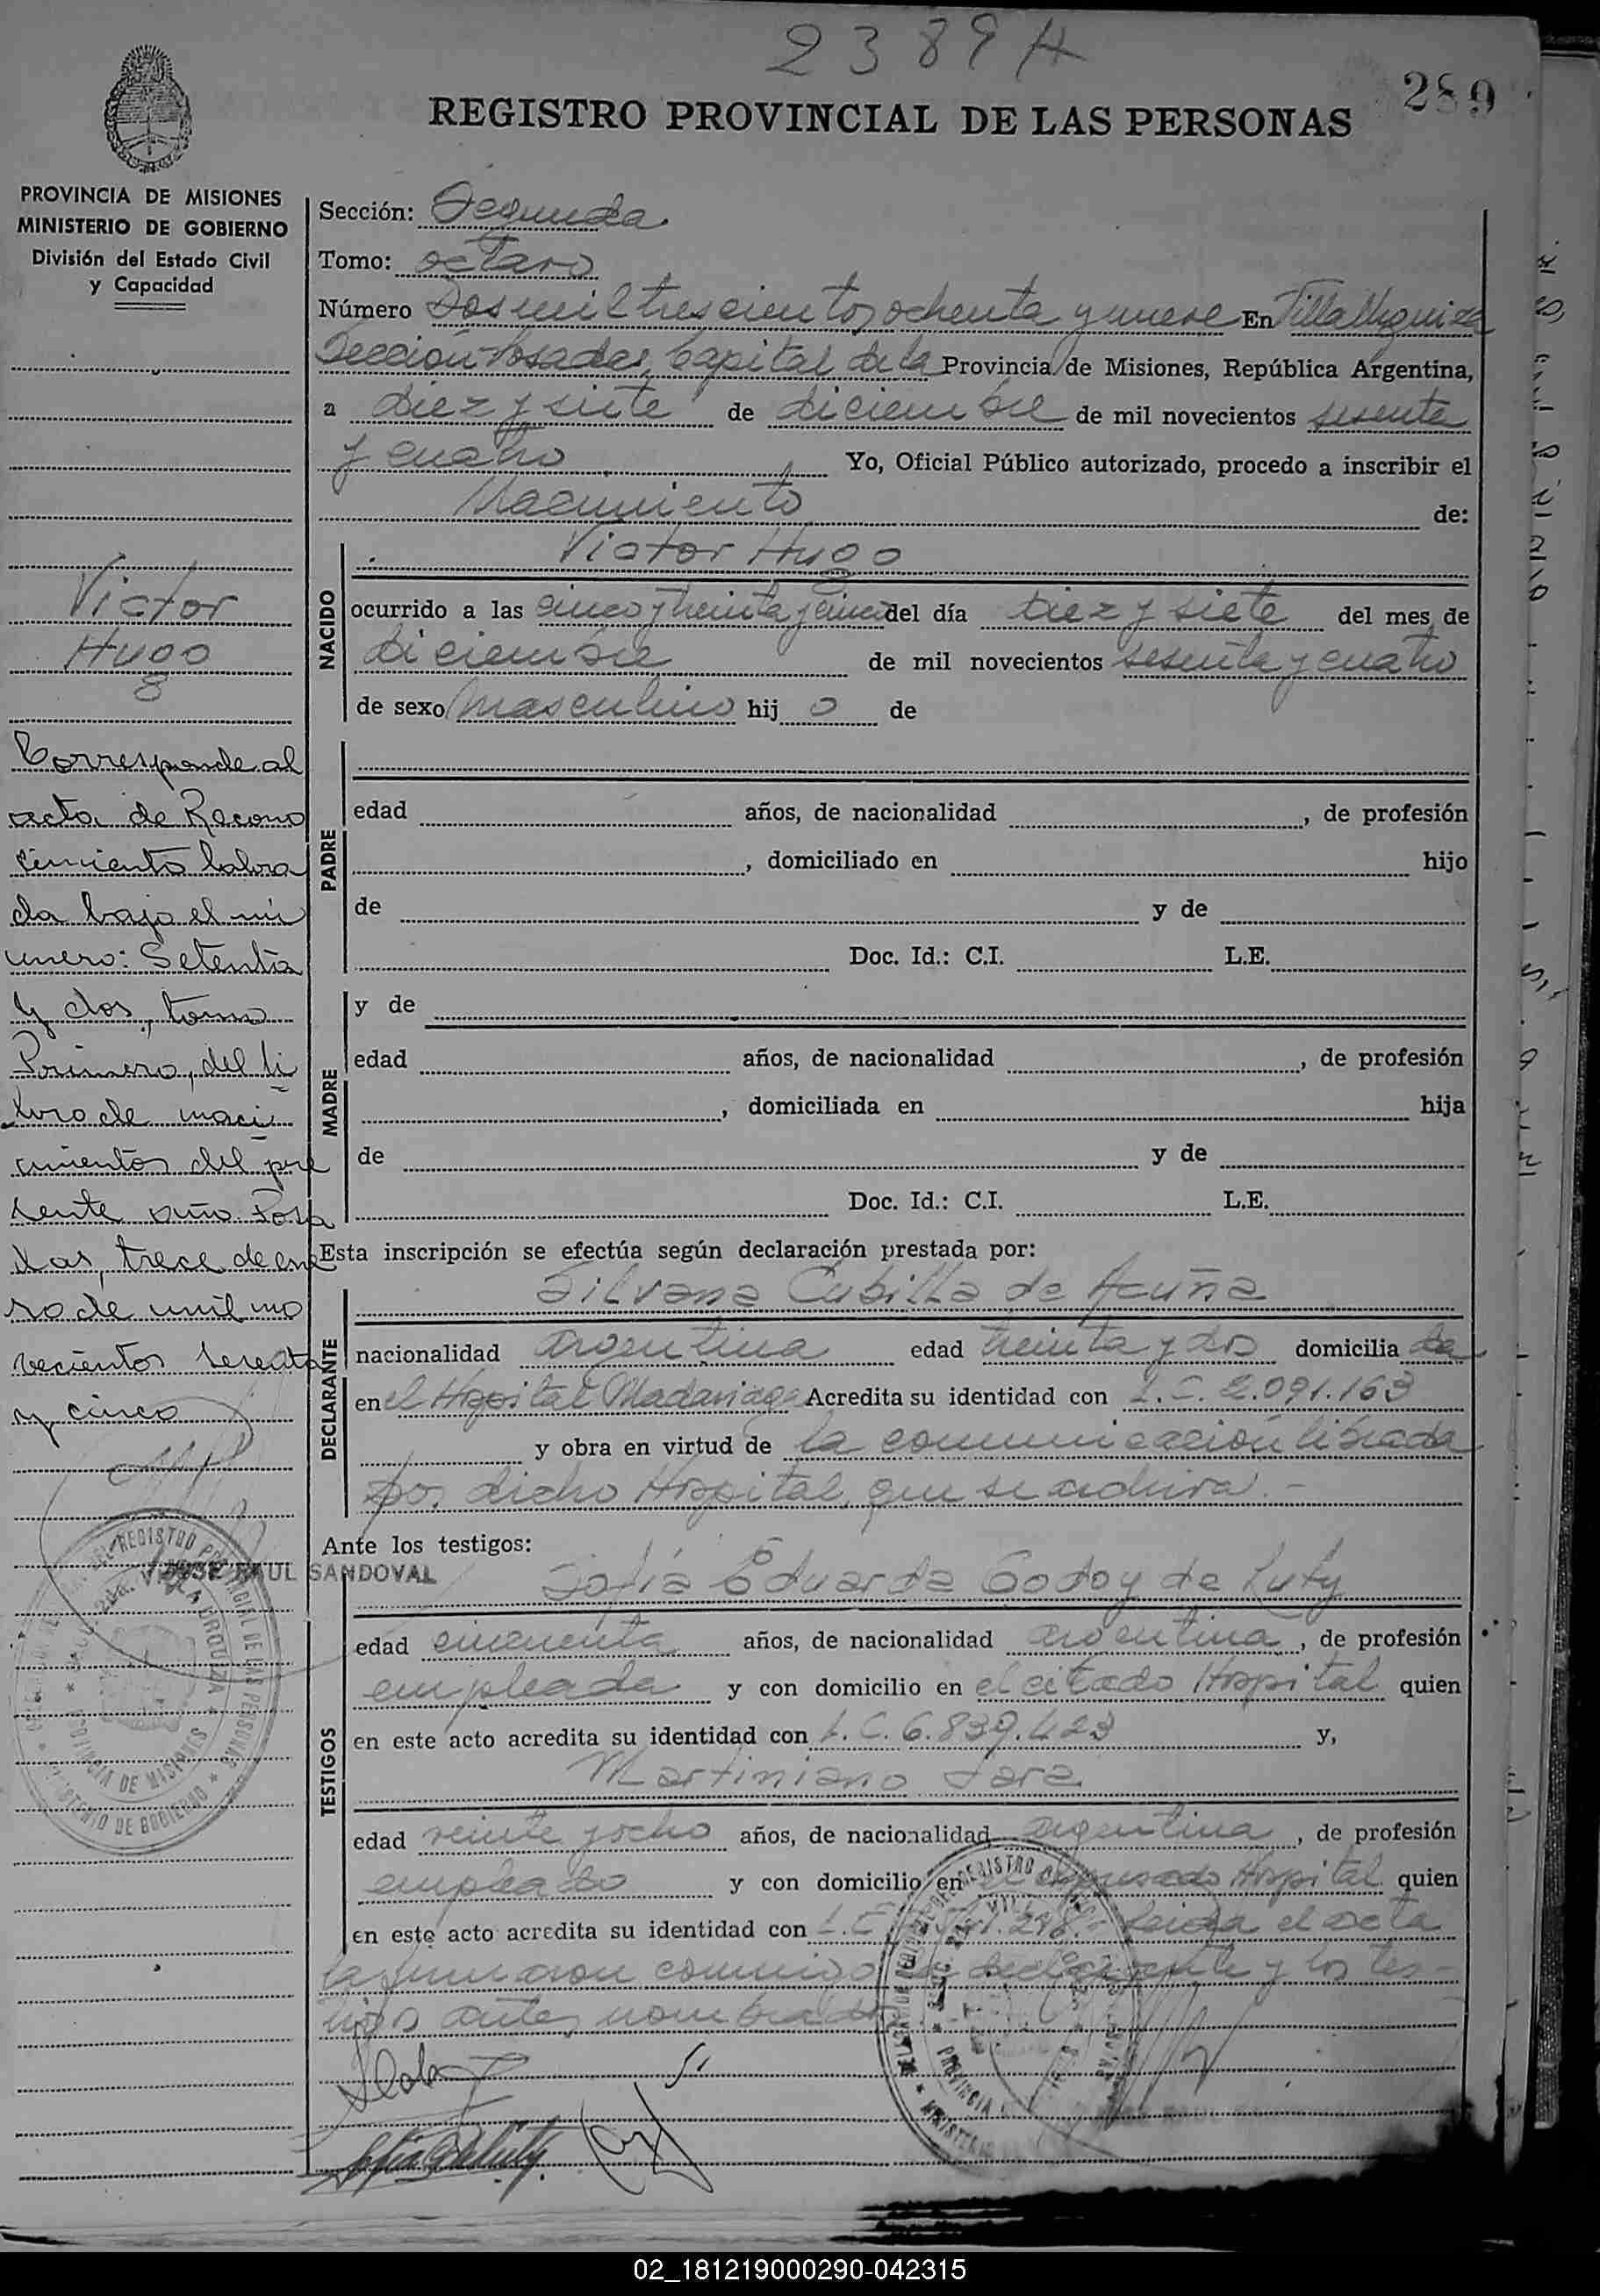 2389 A
289
REGISTRO PROVINCIAL DE LAS PERSONAS
PROVINCIA DE MISIONES
MINISTERIO DE GOBIERNO
División del Estado Civil
y Capacidad
Victor
Hugo
Corresponde al
acta de Recono
cimiento labra
da bajo el nú
mero: Setenta
y dos, tomo
Primero, del li
bro de naci
mientos del pre
sente año. Posa
das, trece de ene
ro de mil no
vecientos sesenta
y cinco
JOSE RAUL SANDOVAL
Sección: Segunda
Tomo: octavo
Número Dos mil trescientos ochenta y nueve En Villa Urquiza
Sección Posadas, Capital de la Provincia de Misiones, República Argentina,
a diez y siete de diciembre de mil novecientos sesenta
y cuatro Yo, Oficial Público autorizado, procedo a inscribir el
Nacimiento de:
NACIDO
Victor Hugo
ocurrido a las cinco y treinta y cinco del día diez y siete del mes de
diciembre de mil novecientos sesenta y cuatro
de sexo masculino hij o de
PADRE
edad años, de nacionalidad , de profesión
, domiciliado en hijo
de y de
Doc. Id.: C.I. L.E.
MADRE
y de
edad años, de nacionalidad , de profesión
, domiciliada en hija
de y de
Doc. Id.: C.I. L.E.
Esta inscripción se efectúa según declaración prestada por:
DECLARANTE
Silvana Cubilla de Acuña
nacionalidad argentina edad treinta y dos domicilia da
en el Hospital Madariaga Acredita su identidad con L.C. 2.091.163
y obra en virtud de la comunicación librada
por dicho Hospital, que se archiva.-
Ante los testigos:
TESTIGOS
Sofía Eduarda Godoy de Luty
edad cincuenta años, de nacionalidad argentina, de profesión
empleada y con domicilio en el citado Hospital quien
en este acto acredita su identidad con L.C. 6.839.423 y,
Martiniano Jara
edad veinte y ocho años, de nacionalidad argentina, de profesión
empleado y con domicilio en el expresado Hospital quien
en este acto acredita su identidad con L.E. Leida el acta
la firmaron conmigo la declarante y los tes-
tigos antes nombrados
02_181219000290-042315